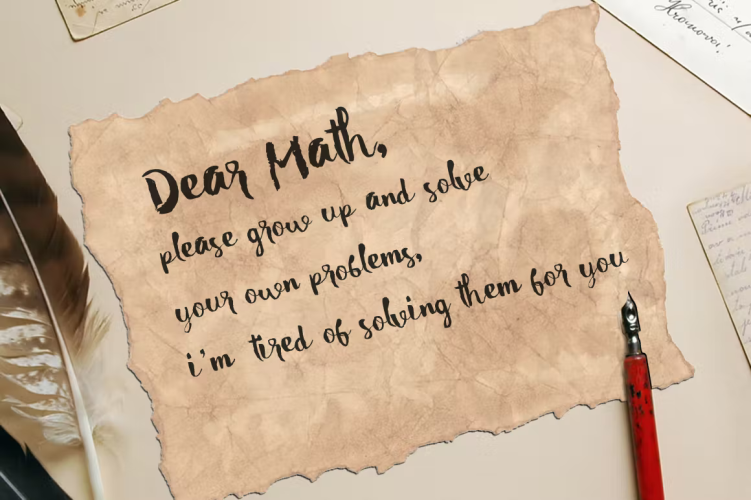 Dear Math,
please grow up and solve
your own problems,
i'm tired of solving them for you